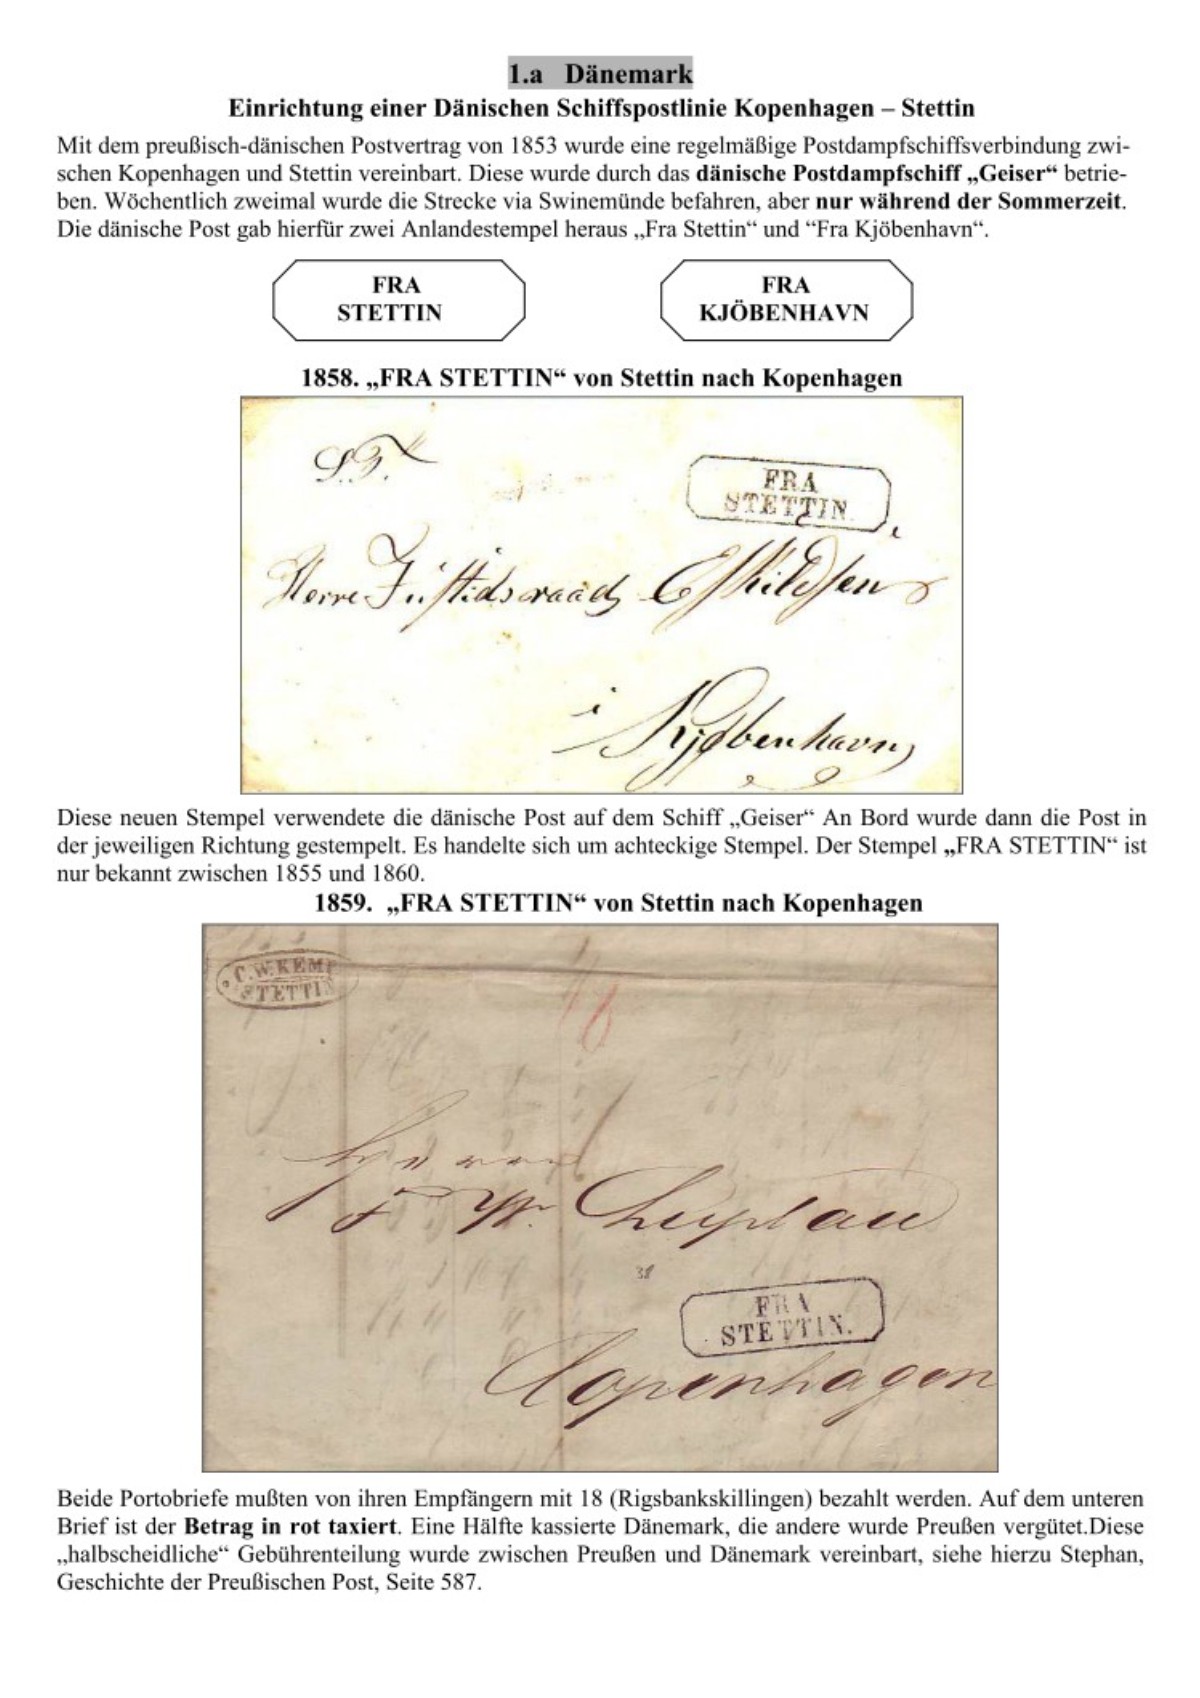 1.a Dänemark
Einrichtung einer Dänischen Schiffspostlinie Kopenhagen – Stettin
Mit dem preußisch-dänischen Postvertrag von 1853 wurde eine regelmäßige Postdampfschiffsverbindung zwi-
schen Kopenhagen und Stettin vereinbart. Diese wurde durch das dänische Postdampfschiff „Geiser“ betrie-
ben. Wöchentlich zweimal wurde die Strecke via Swinemünde befahren, aber nur während der Sommerzeit.
Die dänische Post gab hierfür zwei Anlandestempel heraus „Fra Stettin“ und “Fra Kjöbenhavn“.
FRA
STETTIN
FRA
KJÖBENHAVN
1858. „FRA STETTIN“ von Stettin nach Kopenhagen
FRA
STETTIN.
Herre Justidsraad Eskildsen
i Kjøbenhavn
Diese neuen Stempel verwendete die dänische Post auf dem Schiff „Geiser“ An Bord wurde dann die Post in
der jeweiligen Richtung gestempelt. Es handelte sich um achteckige Stempel. Der Stempel „FRA STETTIN“ ist
nur bekannt zwischen 1855 und 1860.
1859. „FRA STETTIN“ von Stettin nach Kopenhagen
C.W.KEMP
STETTIN
38
FRA
STETTIN.
Copenhagen
Beide Portobriefe mußten von ihren Empfängern mit 18 (Rigsbankskillingen) bezahlt werden. Auf dem unteren
Brief ist der Betrag in rot taxiert. Eine Hälfte kassierte Dänemark, die andere wurde Preußen vergütet.Diese
„halbscheidliche“ Gebührenteilung wurde zwischen Preußen und Dänemark vereinbart, siehe hierzu Stephan,
Geschichte der Preußischen Post, Seite 587.